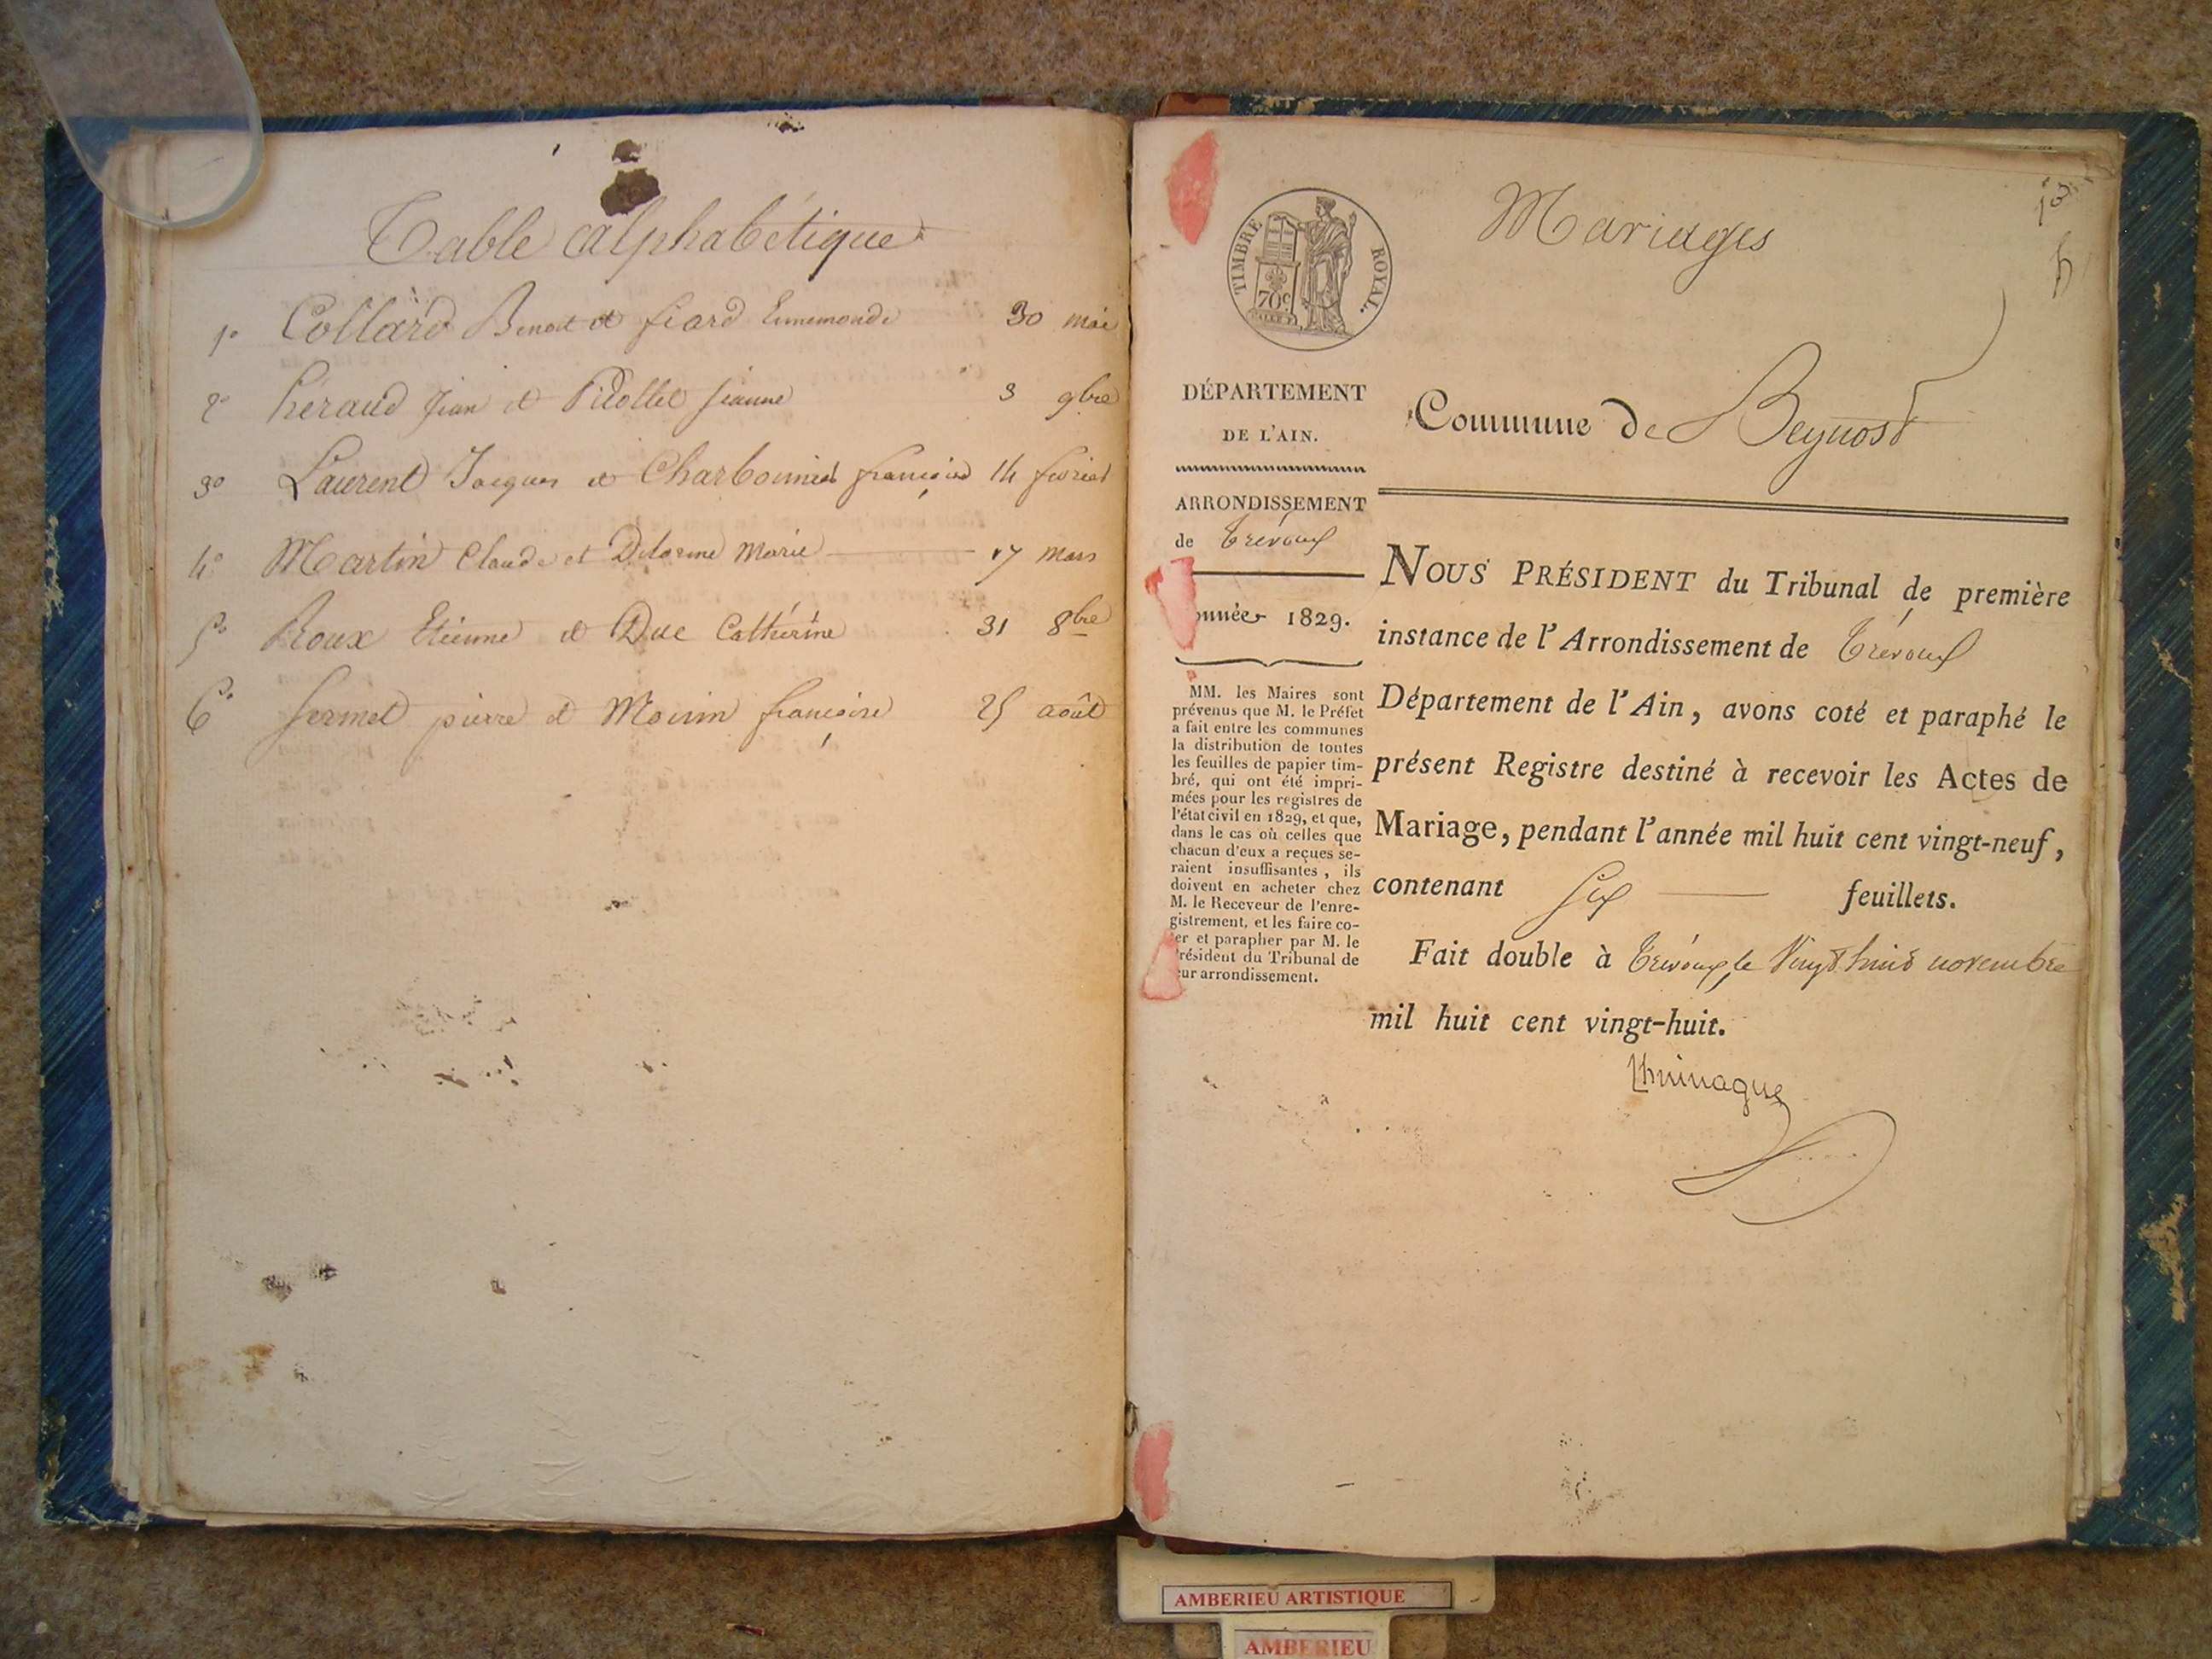 Table alphabétique
1º Collard Benoit et fiard Ennemonde 30 mai
2º héraud Jean et Pitollet Jeanne 3 9bre
3º Laurent Jacques et Charbonnier françoise 14 fevrier
4º Martin Claude et Delorme Marie 17 mars
5º Roux Etienne et Duc Cathérine 31 8bre
6º Sermet pierre et Moirin françoise 25 août
Mariages
1er
TIMBRE ROYAL.
70c
DÉPARTEMENT
DE L'AIN.
ARRONDISSEMENT
de Trévoux
onnée 1829.
MM. les Maires sont
prévenus que M. le Préfet
a fait entre les communes
la distribution de toutes
les feuilles de papier tim-
bré, qui ont été impri-
mées pour les registres de
l'état civil en 1829, et que,
dans le cas où celles que
chacun d'eux a reçues se-
raient insuffisantes, ils
doivent en acheter chez
M. le Receveur de l'enre-
gistrement, et les faire co-
ter et parapher par M. le
Président du Tribunal de
eur arrondissement.
Commune de Beynost
NOUS PRÉSIDENT du Tribunal de première
instance de l'Arrondissement de Trévoux
Département de l'Ain, avons coté et paraphé le
présent Registre destiné à recevoir les Actes de
Mariage, pendant l'année mil huit cent vingt-neuf,
contenant Six feuillets.
Fait double à Trévoux, le Vingt huit novembre
mil huit cent vingt-huit.
AMBERIEU ARTISTIQUE
AMBERIEU